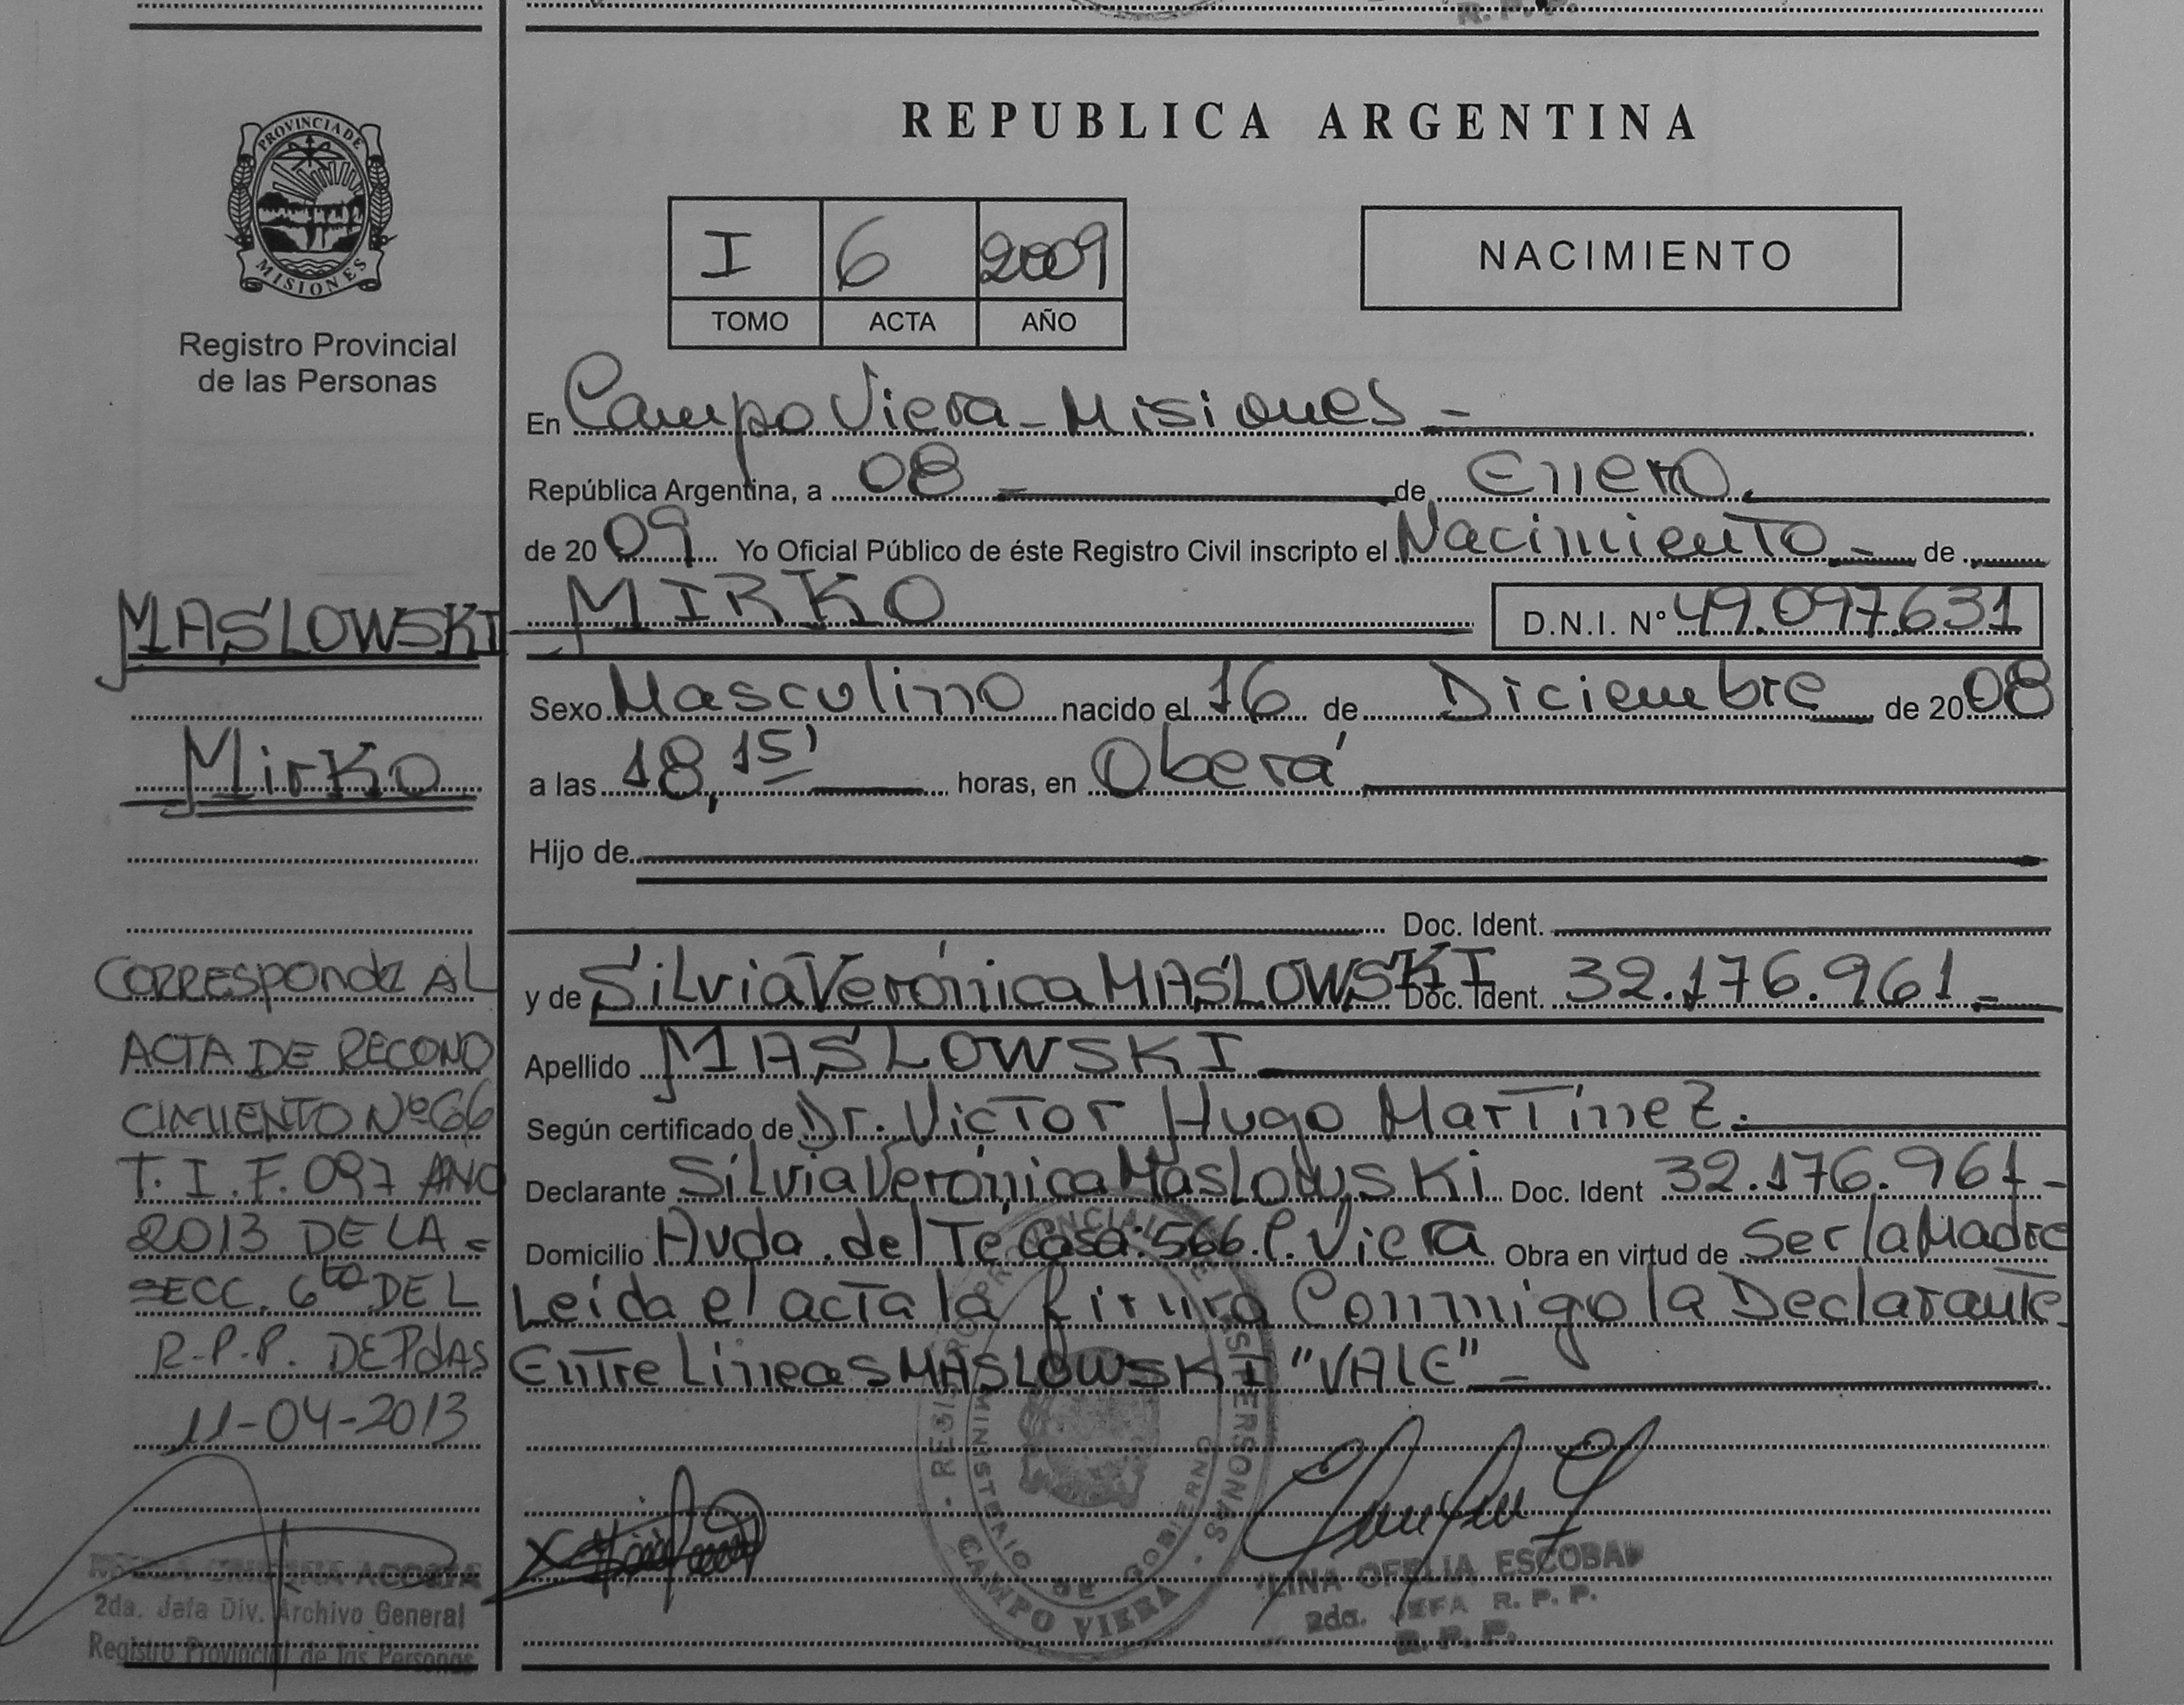 R. P. P.
REPUBLICA ARGENTINA
PROVINCIA DE
MISIONES
Registro Provincial
de las Personas
I 6 2009
TOMO ACTA AÑO
NACIMIENTO
En Campo Viera - Misiones -
República Argentina, a 08 - de Enero.
de 2009 Yo Oficial Público de éste Registro Civil inscripto el Nacimiento - de
MIRKO D.N.I. Nº 49.097.631
Sexo Masculino nacido el 16 de Diciembre de 2008
a las 18,15' horas, en Oberá
Hijo de
Doc. Ident.
y de Silvia Verónica MASLOWSKI Doc. Ident. 32.176.961 -
Apellido MASLOWSKI
Según certificado de Dr. Victor Hugo Martínez.
Declarante Silvia Verónica Maslowski Doc. Ident 32.176.961 -
Domicilio Avda. del Té Casa: 566. C. Viera Obra en virtud de Ser la Madre
Leída el acta la firma Conmigo la Declarante
Entre Líneas MASLOWSKI "VALE" -
MASLOWSKI
Mirko
CORRESponde AL
ACTA DE RECONO
CIMIENTO Nº 66
T. I. F. 097 AÑO
2013 DE LA =
SECC. 6ta DEL
R.P.P. DE PdAS
11-04-2013
ACOSTA
2da. Jefa Div. Archivo General
Registro Provincial de las Personas
REGISTRO PROVINCIAL DE LAS PERSONAS
MINISTERIO DE GOBIERNO
CAMPO VIERA
LINA OFELIA ESCOBAR
2da. JEFA R. P. P.
R. P. P.